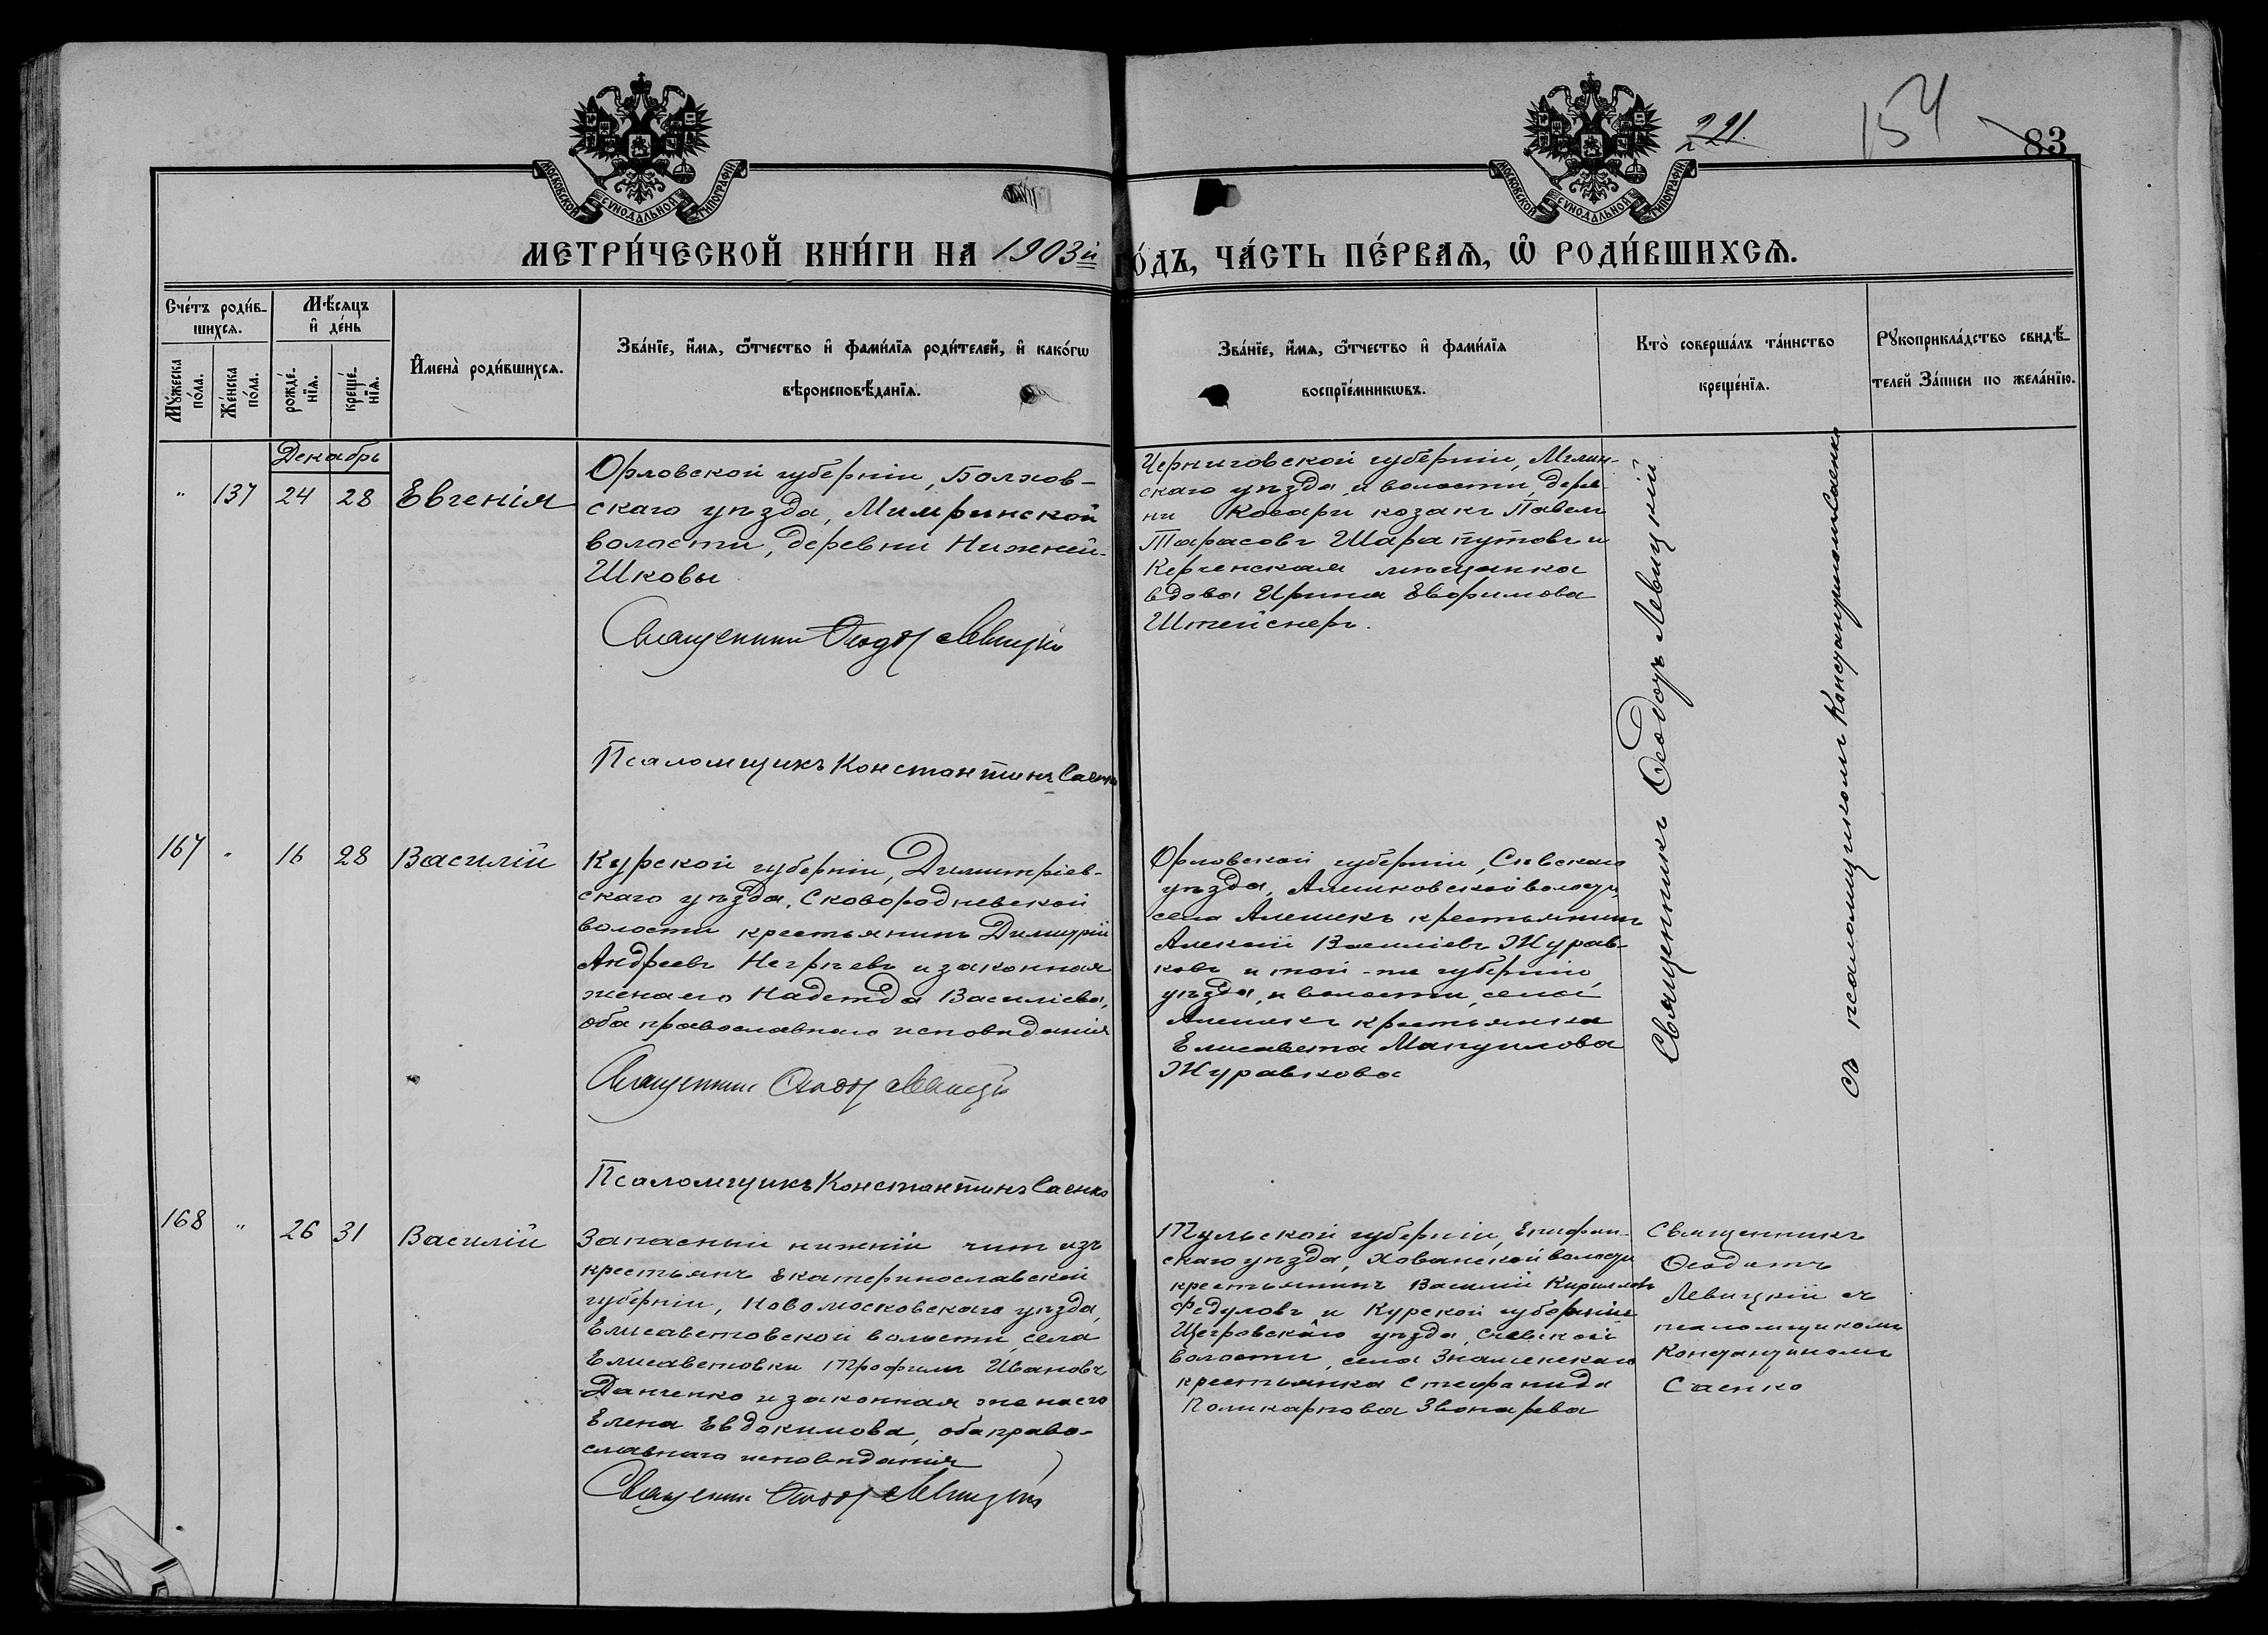 221
154
83
МОСКОВСКОЙ СѴНОДАЛЬНОЙ ТИПОГРАФІИ
МОСКОВСКОЙ СѴНОДАЛЬНОЙ ТИПОГРАФІИ
МЕТРИ́ЧЕСКОЙ КНИ́ГИ НА 1903й ГО́ДЪ, ЧА́СТЬ ПЕ́РВАѦ, Ѽ РОДИ́ВШИХСѦ.
Сче́тъ роди́в-
шихсѧ.
Мꙋ́жеска по́ла.
Же́нска по́ла.
Мѣ́сѧцъ
и҆ де́нь
рожде́-
нїѧ.
креще́-
нїѧ.
И҆мена̀ роди́вшихсѧ.
Зва́нїе, и҆́мѧ, ѻ҆́тчество и҆ фами́лїѧ роди́телей, и҆ како́гѡ
вѣроисповѣ́данїѧ.
Зва́нїе, и҆́мѧ, ѻ҆́тчество и҆ фами́лїѧ
воспрїе́мникѡвъ.
Кто̀ соверша́лъ та́инство
креще́нїѧ.
Рꙋкоприкла́дство свидѣ́-
телей за́писи по жела́нїю.
Декабрь
" 137 24 28 Евгенія
Орловской губерніи, Болхов-
скаго уѣзда, Мимринской
волости, деревни Нижней-
Шковы
Священникъ Ѳеодоръ Левицкій
Псаломщикъ Константинъ Саенко
Черниговской губерніи, Мглин-
скаго уѣзда и волости, дерев-
ни Косари козакъ Павелъ
Тарасовъ Шарапутовъ и
Керченская мѣщанка
вдова Ирина Евфимова
Штейснеръ.
Священникъ Ѳеодоръ Левицкій
съ псаломщикомъ Константиномъ Саенко
167 " 16 28 Василій
Курской губерніи, Димитріев-
скаго уѣзда, Сковородневской
волости крестьянинъ Димитрій
Андреевъ Негрѣевъ и законная
жена его Надежда Василіева,
оба православнаго исповѣданія
Священникъ Ѳеодоръ Левицкій
Псаломщикъ Константинъ Саенко
Орловской губерніи, Сѣвскаго
уѣзда, Алешковской волости,
села Алешекъ крестьянинъ
Алексій Василіевъ Журав-
ковъ и той-же губерніи,
уѣзда и волости, села
Алешекъ крестьянка
Елисавета Мануилова
Журавкова
168 " 26 31 Василій
Запасный нижній чинъ изъ
крестьянъ Екатеринославской
губерніи, Новомосковскаго уѣзда,
Елисаветовской волости, села
Елисаветовки Трофимъ Ивановъ
Данченко и законная жена его
Елена Евдокимова, оба право-
славнаго исповѣданія
Священникъ Ѳеодоръ Левицкій
Тульской губерніи, Епифан-
скаго уѣзда, Хованской волости
крестьянинъ Василій Кирилловъ
Федуловъ и Курской губерніи
Щегровскаго уѣзда,
волости, села Знаменскаго
крестьянка Стефанида
Поликарпова Звонарева
Священникъ
Ѳеодотъ
Левицкій съ
псаломщикомъ
Константиномъ
Саенко